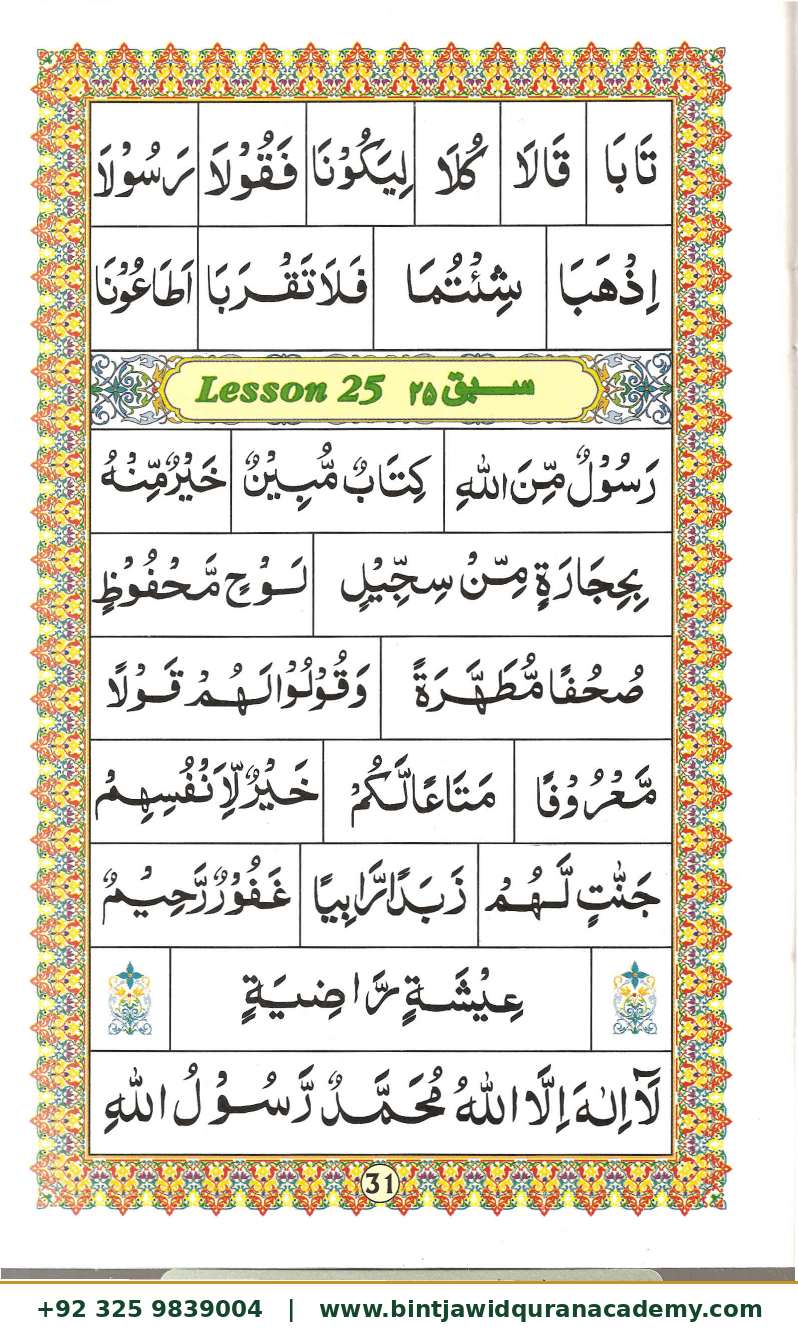 تَابَا قَالَا كُلَا لِيَكُوْنَا فَقُوْلَا رَسُوْلَا
اِذْهَبَا شِئْتُمَا فَلَا تَقْرَبَا اَطَاعُوْنَا
Lesson 25 سبق ۲۵
رَسُوْلٌ مِّنَ اللهِ كِتَابٌ مُّبِيْنٌ خَيْرٌ مِّنْهُ
بِحِجَارَةٍ مِّنْ سِجِّيْلٍ لَوْحٍ مَّحْفُوْظٍ
صُحُفًا مُّطَهَّرَةً وَقُوْلُوْا لَهُمْ قَوْلًا
مَّعْرُوْفًا مَتَاعًا لَّكُمْ خَيْرٌ لِّاَنْفُسِهِمْ
جَنّٰتٍ لَّهُمْ زَبَدًا رَّابِيًا غَفُوْرٌ رَّحِيْمٌ
عِيْشَةٍ رَّاضِيَةٍ
لَآ اِلٰهَ اِلَّا اللهُ مُحَمَّدٌ رَّسُوْلُ اللهِ
31
+92 325 9839004 | www.bintjawidquranacademy.com